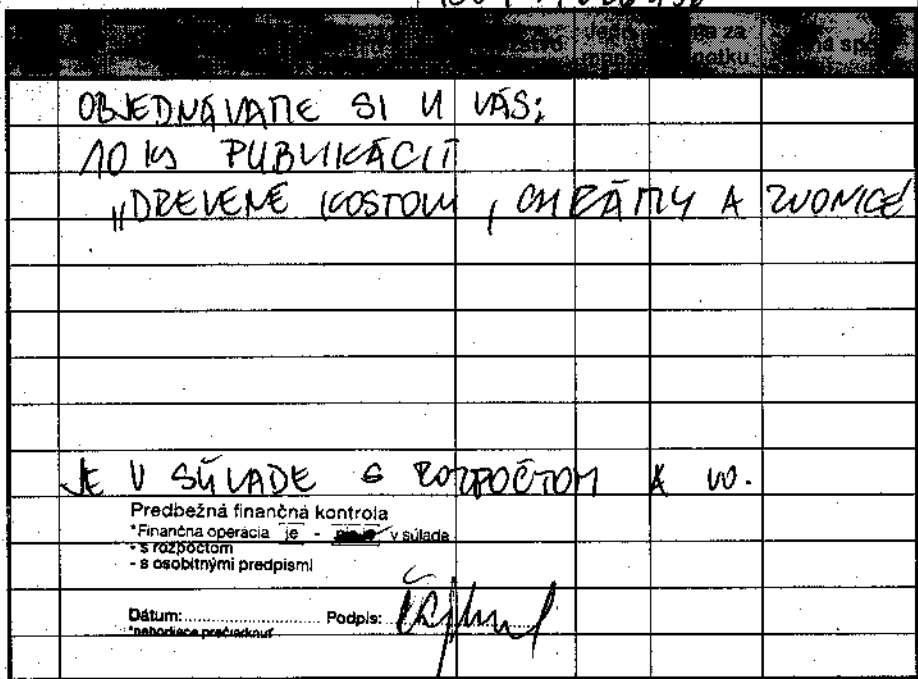 Jedn za
OBJEDNÁVAME SI U VÁS:
10 ks PUBLIKÁCIÍ
„DREVENÉ KOSTOLY, CHRÁMY A ZVONICE"
JE V SÚLADE S ROZPOČTOM A VO.
Predbežná finančná kontrola
*Finančná operácia je - nie je v súlade
- s rozpočtom
- s osobitnými predpismi
Dátum: Podpis:
*nehodiace prečiarknuť